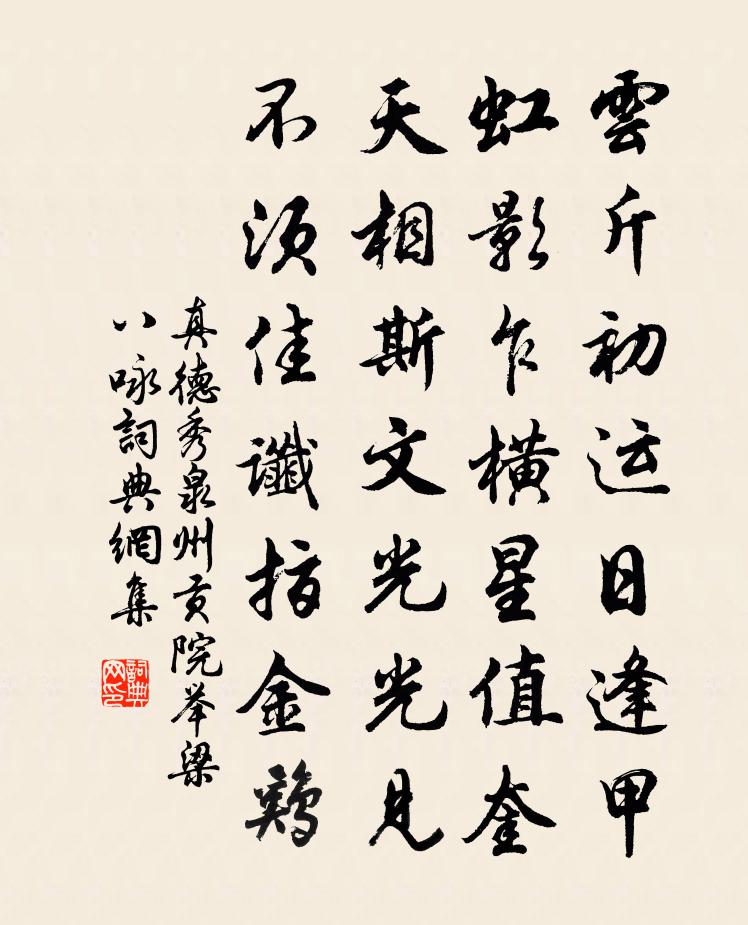 雲斤初运日逢甲
虹影乍橫星值奎
天相斯文光光見
不須佳讖指金鷄
真德秀泉州贡院举梁
八咏詞典網集
詞典网印